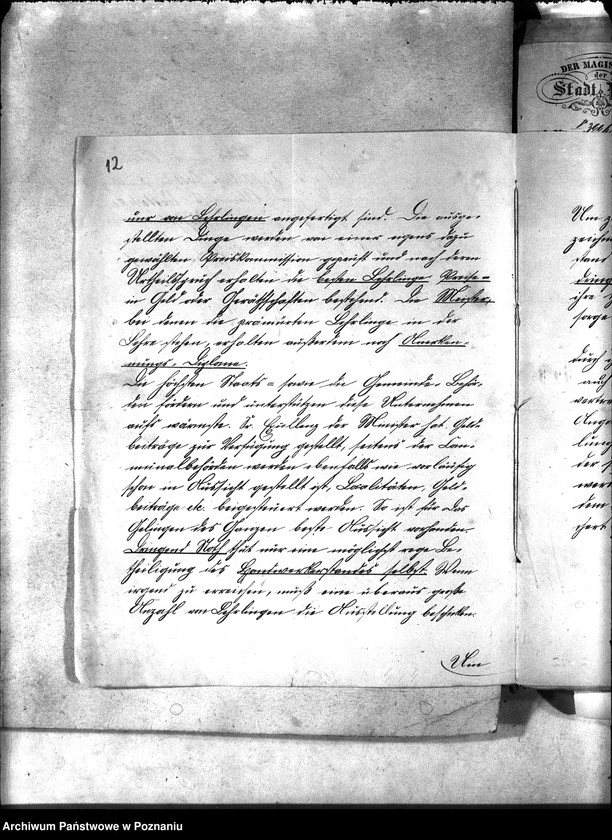 12
nur von Lehrlingen angefertigt sind. Die ausge-
stellten Dinge werden von einer eigens dazu
gewählten Preiskommission geprüft und nach deren
Urtheilsspruch erhalten die besten Lehrlinge Preise =
in Geld oder Geräthschaften bestehend. Die Meister,
bei denen die prämiirten Lehrlinge in der
Lehre stehen, erhalten außerdem noch Anerken-
nungs-Diplome.
Die höchsten Staats= sowie die Gemeinde-Behör-
den fördern und unterstützen diese Unternehmen
aufs wärmste. Sr. Excellenz der Minister hat Geld-
beiträge zur Verfügung gestellt, seitens der Com-
munalbehörden werden ebenfalls wie vorläufig
schon in Aussicht gestellt ist, Localitäten, Geld-
beiträge etc. beigesteuert werden. So ist für das
Gelingen des Ganzen beste Aussicht vorhanden.
Dringend Noth thut nur eine möglichst rege Be-
theiligung des Handwerkerstandes selbst. Wenn
irgend zu erreichen, muß eine überaus große
Anzahl von Lehrlingen die Ausstellung beschicken.
Um
DER MAGIS
der
Stadt
Um
zeichn
stand
ihre
sorge
durch
auch
vertra
Ange
lung
der
wer
dem
Archiwum Państwowe w Poznaniu